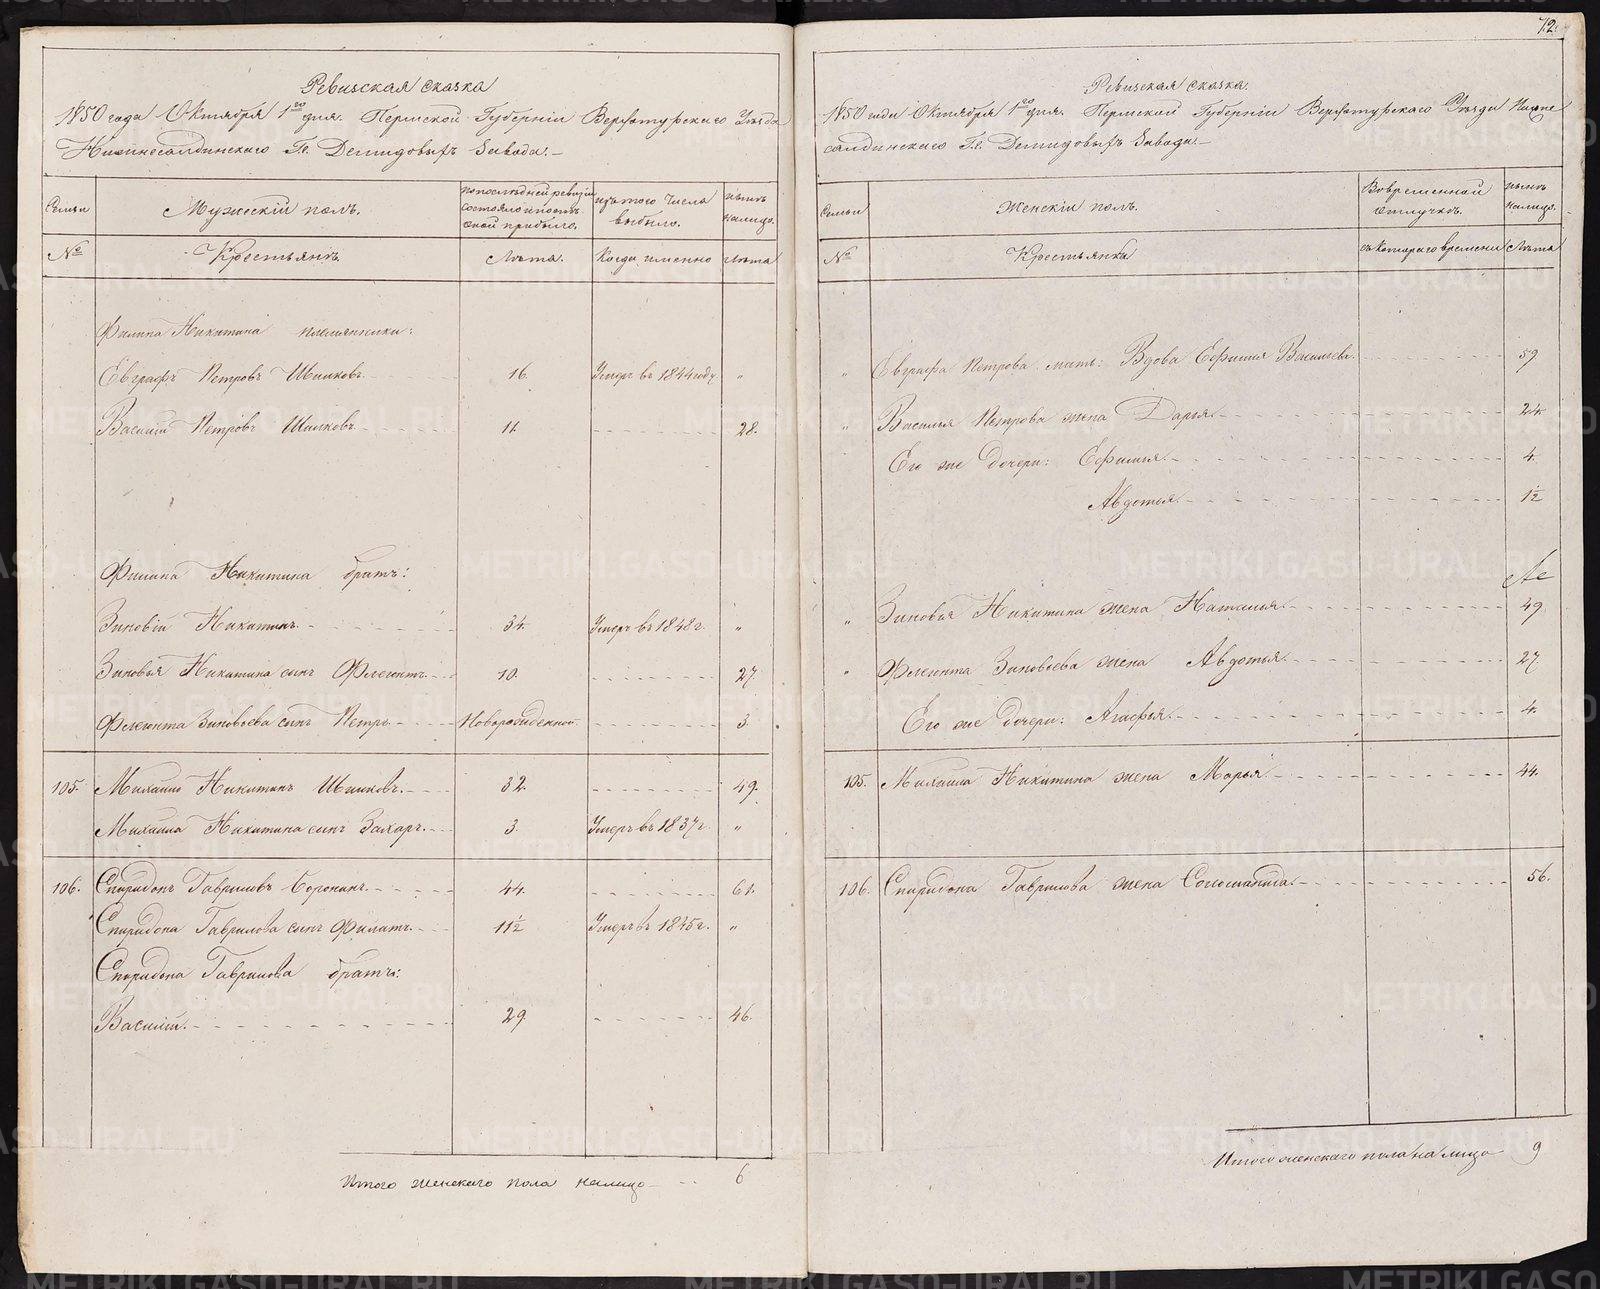 Ревизская сказка
1850 года Октября 1го дня. Пермской Губернiи Верхотурскаго Уѣзда
Нижнесалдинскаго Гг. Демидовыхъ Завода.
Семьи
Мужескiй полъ.
По последней ревизiи состояло и после оной прибыло.
изъ того числа выбыло.
нынѣ налицо.
№
Крестьянъ.
Лѣта.
Когда именно
Лѣта
Филипа Никитина племянники:
Евграфъ Петровъ Шишковъ 16. Умеръ въ 1844 году „
Василiй Петровъ Шишковъ 11. 28.
Филипа Никитина братъ:
Зиновiй Никитинъ 34. Умеръ въ 1848 г. „
Зиновья Никитина сынъ Флегонтъ. 10. 27.
Флегонта Зиновьева сынъ Петръ Новорожденной 3.
105. Михайло Никитинъ Шишковъ. 32. 49.
Михаила Никитина сынъ Захаръ. 3. Умеръ въ 1837 г. „
106. Спиридонъ Гавриловъ 44. 61.
Спиридона Гаврилова сынъ Филатъ. 11½ Умеръ въ 1845 г. „
Спиридона Гаврилова братъ:
Василiй. 29. 46.
Итого женскаго пола налицо 6
72.
Ревизская сказка.
1850 года Октября 1го дня. Пермской Губернiи Верхотурскаго Уѣзда Нижне
салдинскаго Гг. Демидовыхъ Завода.
Семьи
Женскiй полъ.
Во временной отлучкѣ.
нынѣ налицо.
№
Крестьянка
съ котораго времени
Лѣта
„ Евграфа Петрова мать: Вдова Ефимия Васильева. 59
„ Василья Петрова жена Дарья. 24.
Его же дочери: Ефимья. 4.
Авдотья. 1½
„ Зиновья Никитина жена Наталья. 49.
„ Флегонта Зиновьева жена Авдотья. 27.
Его же дочери: Агафья. 4.
105. Михаила Никитина жена Марья. 44.
106. Спиридона Гаврилова жена Соломанида. 56.
Итого женскаго пола на лицо 9
METRIKI.GASO-URAL.RU